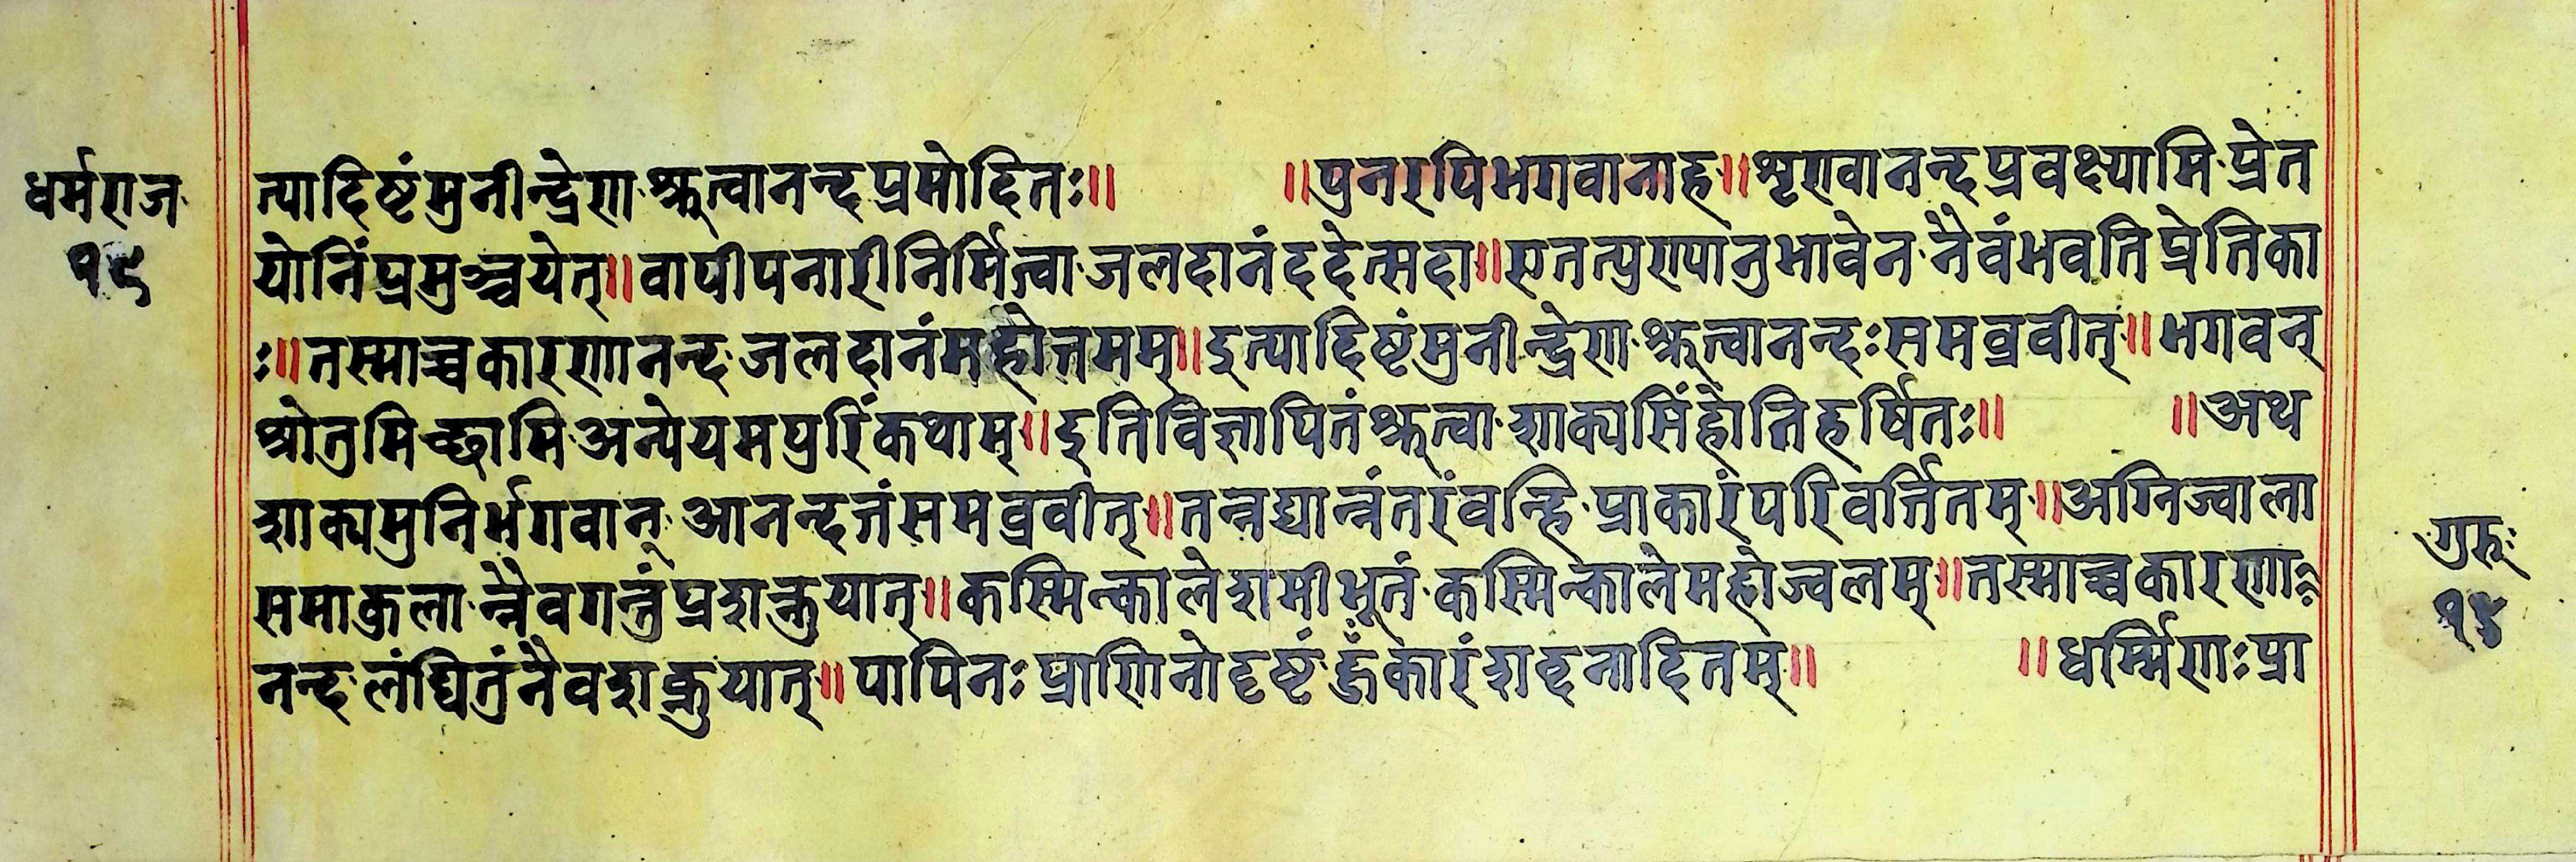 धर्मराज
१५
त्यादिष्टंमुनीन्द्रेण श्रुत्वानन्दप्रमोदितः॥ ॥पुनरपिभगवानाह॥शृण्वानन्दप्रवक्ष्यामि प्रेत
योनिंप्रमुञ्चयेत्॥वापीपनारीनिर्मित्वा जलदानंददेत्सदा॥एतत्पुण्यानुभावेन नैवंभवतिप्रेतिका
ः॥तस्माच्चकारणानन्द जलदानंमहोत्तमम्॥इत्यादिष्टंमुनीन्द्रेण श्रुत्वानन्दःसमव्रवीत्॥भगवन्
श्रोतुमिच्छामि अन्येयमपुरिंकथाम्॥इतिविज्ञापितंश्रुत्वा शाक्यसिंहोतिहर्षितः॥ ॥अथ
शाक्यमुनिर्भगवान् आनन्दत्तंसमव्रवीत्॥तन्नद्यान्नंतरंवन्हि प्राकारंपरिवर्त्तितम्॥अग्निज्वाला
समाकुला न्नैवगन्तुंप्रशक्नुयात्॥कस्मिन्कालेशमीभूतं कस्मिन्कालेमहोज्वलम्॥तस्माच्चकारणा
नन्द लंघितुंनैवशक्नुयात्॥पापिनःप्राणिनोदृष्टं शब्दनादितम्॥ ॥धर्म्मिणःप्रा
गुरुः
१५